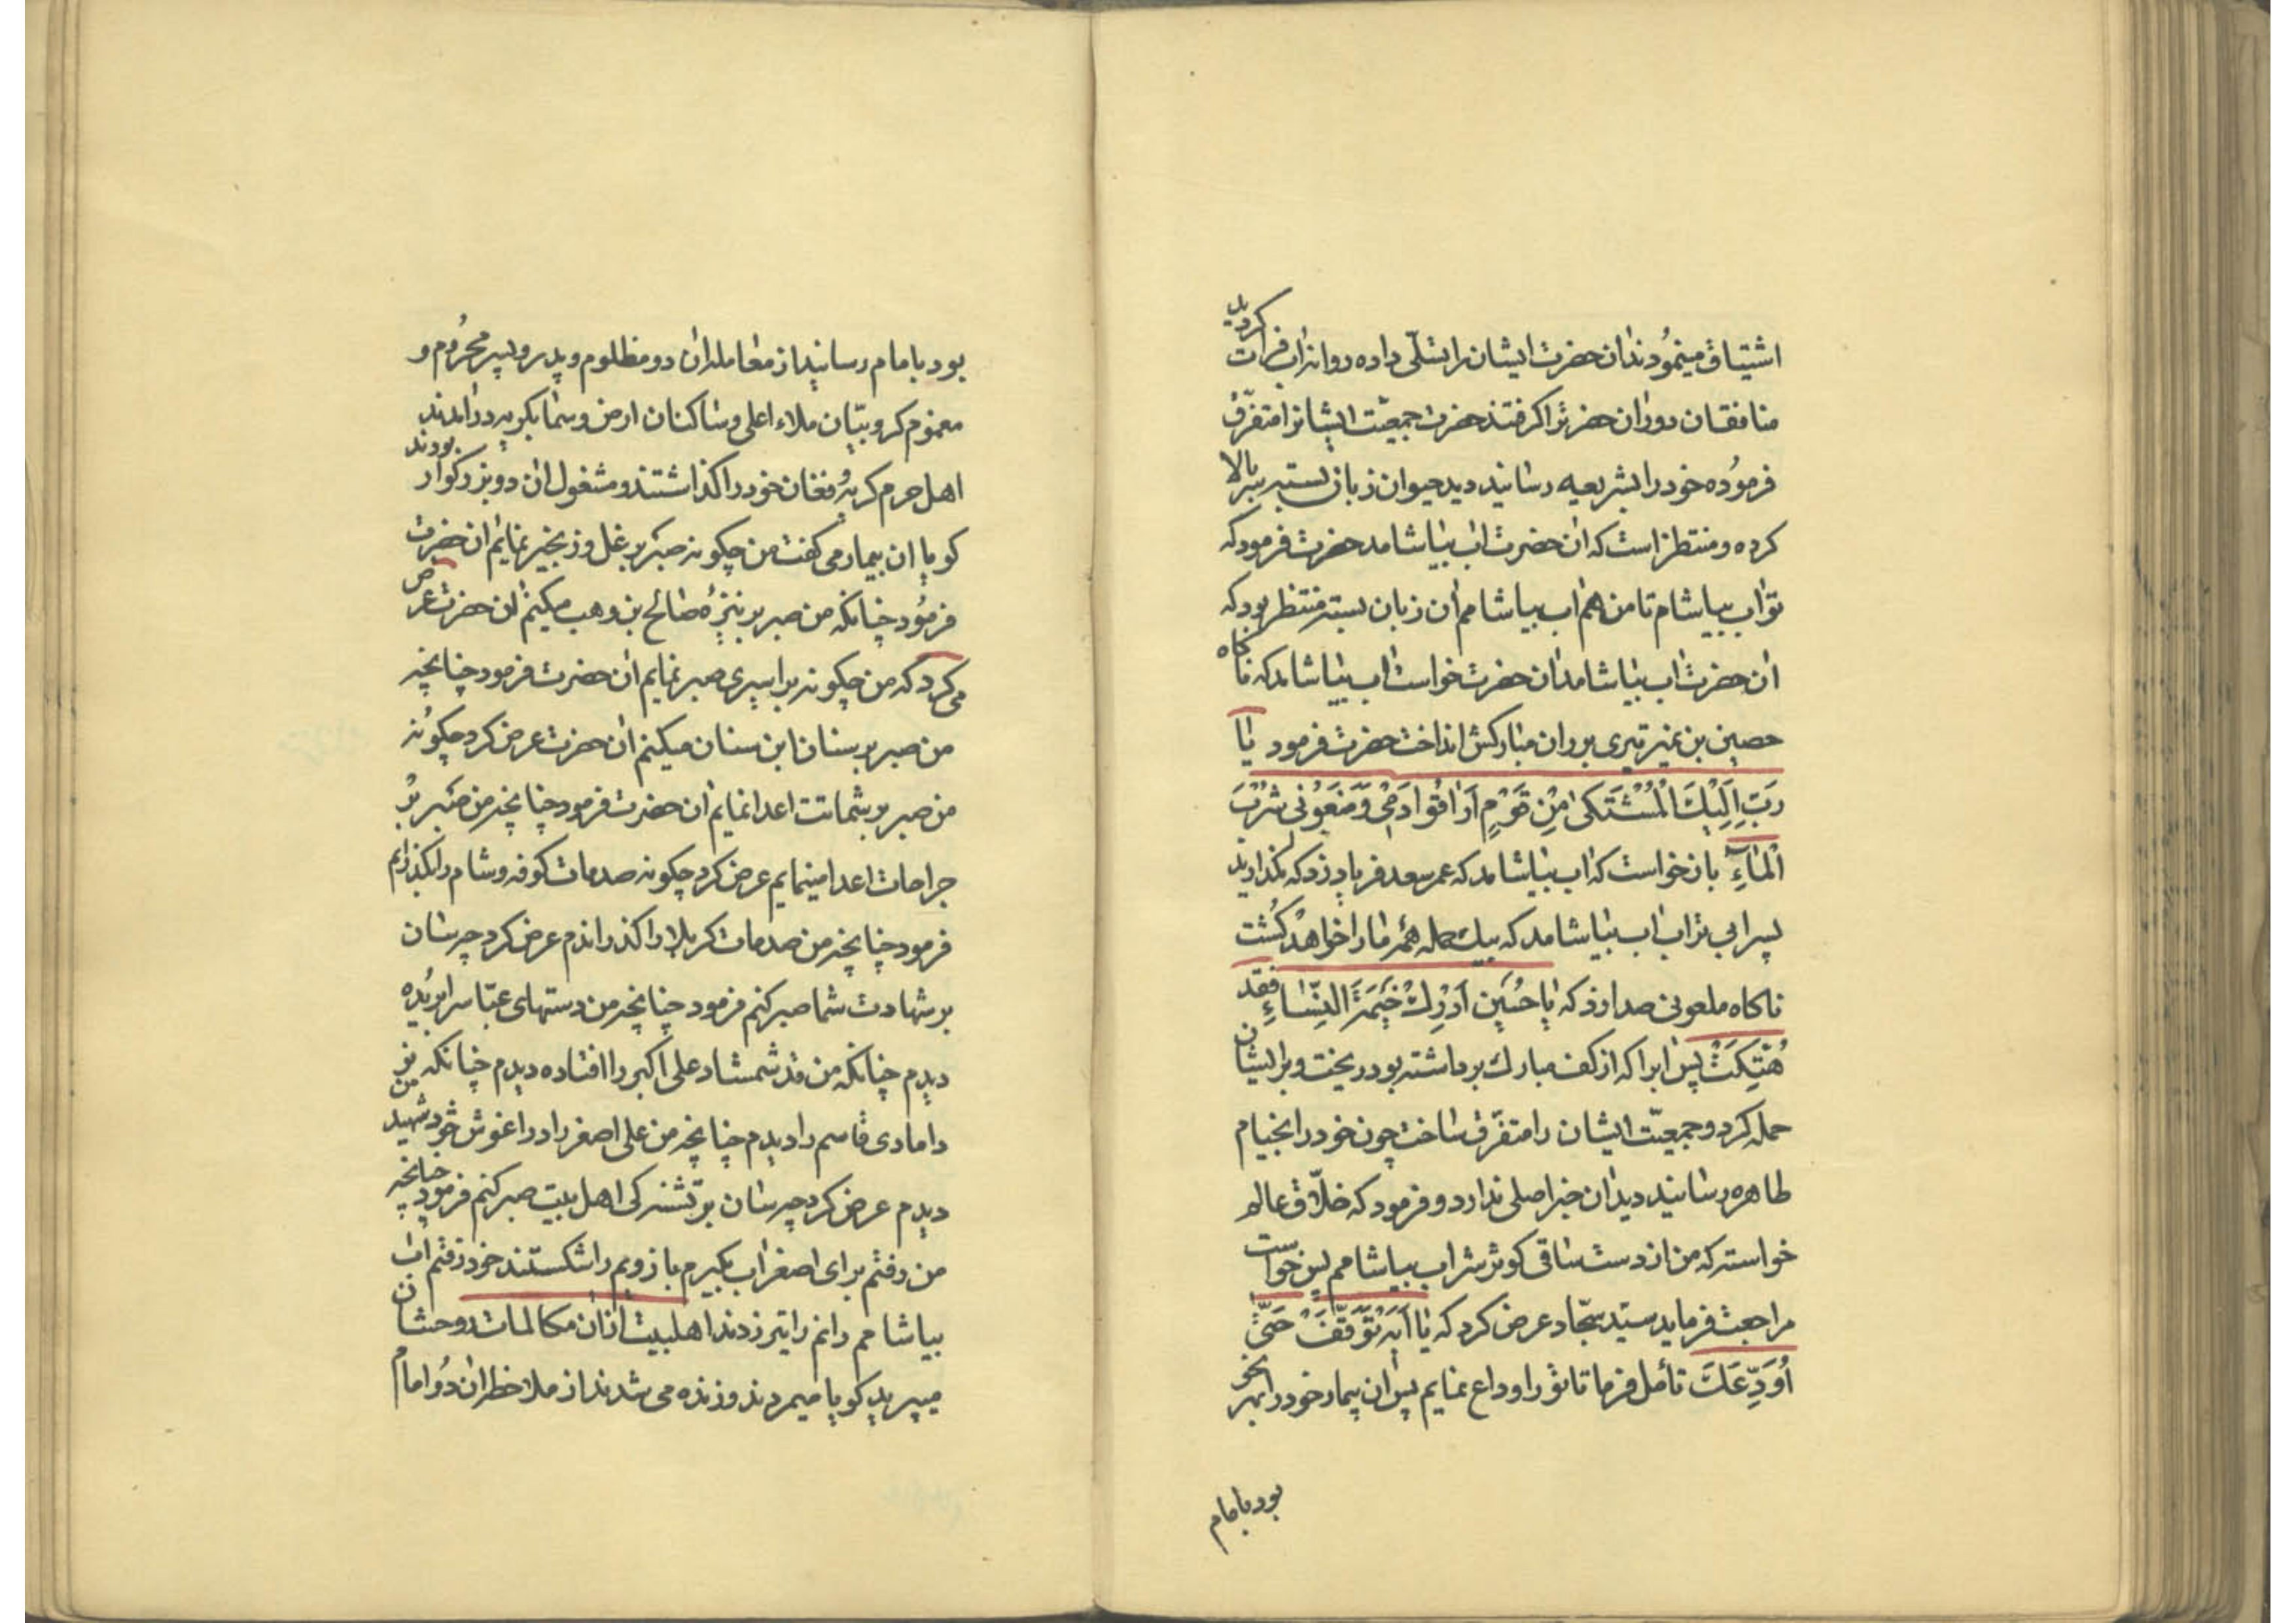 اشتیاق مینمودند ان حضرت ایشان را تسلّی داده روانه اب فرات گردید
منافقان دور ان حضرترا گرفتند حضرت جمعیّت ایشانرا متفرّق
فرموُده خود را بشریعه رسانید دید حیوان زبان بسته سر بالا
کرده و منتظر است که ان حضرت اب بیاشامد حضرت فرمود که
تو اب بیاشام تا من هم اب بیاشامم ان زبان بسته منتظر بود که
ان حضرت اب بیاشامد ان حضرت خواست اب بیاشامد که ناگاه
حصین بن نمیر تیری بر دهان مبارکش انداخت حضرت فرمود یا
رَبِّ اِلَیْكَ الْمُشْتَكیٰ مِنْ قَوْمٍ اَرٰاقُوا دَمی وَ مَنَعُونی شُرْبَ
الْمٰاءِ باز خواست که اب بیاشامد که عمر سعد فریاد زد که نگذارید
پسر ابی تراب اب بیاشامد که بیك حمله همه ما را خواهد کُشت
ناگاه ملعونی صدا زد که یٰا حُسَین اَدْرِكْ خَیْمَةَ النِّسٰاءِ فقد
هُتِکَتْ پس ابرا که از کف مبارك برداشته بود ریخت و بر ایشان
حمله کرد و جمعیّت ایشان را متفرّق ساخت چون خود را بخیام
طاهره رسانید دید ان خبر اصلی ندارد و فرمود که خلّاق عالم
خواسته که من از دست ساقی کوثر شراب بیاشامم پس خواست
مراجعت فرماید سیّد سجّاد عرض کرد که یٰا اَبَه تَوَقَّفْ حَتّیٰ
اُوَدِّعَكَ تأمل فرما تا تو را وداع نمایم پس ان بیمار خود را بهر نحو
بود بامام
بود بامام رسانید از معامله ان دو مظلوم و پدر و پسر محرُوم و
مغموم کروبیّان ملاء اعلی و ساکنان ارض و سما بگریه درامدند
اهل حرم گریه و فغان خود را گذاشتند و مشغول ان دو بزرگوار بودند
گویا ان بیمار می گفت من چگونه صبر بر غل و زنجیر نمایم ان حضرت
فرموُد چنانکه من صبر بر نیزهٔ صالح بن وهب میکنم ان حضرت عرض
می کرد که من چگونه بر اسیری صبر نمایم ان حضرت فرمود چنانچه
من صبر بر سنان ابن سنان میکنم ان حضرت عرض کرد چگونه
من صبر بر شماتت اعدا نمایم ان حضرت فرمود چنانچه من صبر بر
جراحات اعدا مینمایم عرض کرد چگونه صدمات کوفه و شام را بگذرانم
فرمود چنانچه من صدمات کربلا را گذراندم عرض کرد چه سان
بر شهادت شما صبر کنم فرمود چنانچه من دستهای عبّاس را بریُده
دیدم چنانکه من قد شمشاد علی اکبر را افتاده دیدم چنانکه من نو
دامادی قاسم را دیدم چنانچه من علی اصغر را در اغوش خود شهید
دیدم عرض کرد چه سان بر تشنه گی اهل بیت صبر کنم فرمود چنانچه
من رفتم برای اصغر اب بگیرم بازویم را شکستند خود رفتم اب
بیاشامم دهانم را تیر زدند اهلبیت از ان مکالمات روحشان
میپرید گویا میمردند و زنده می شدند از ملاحظه ان دُو امام